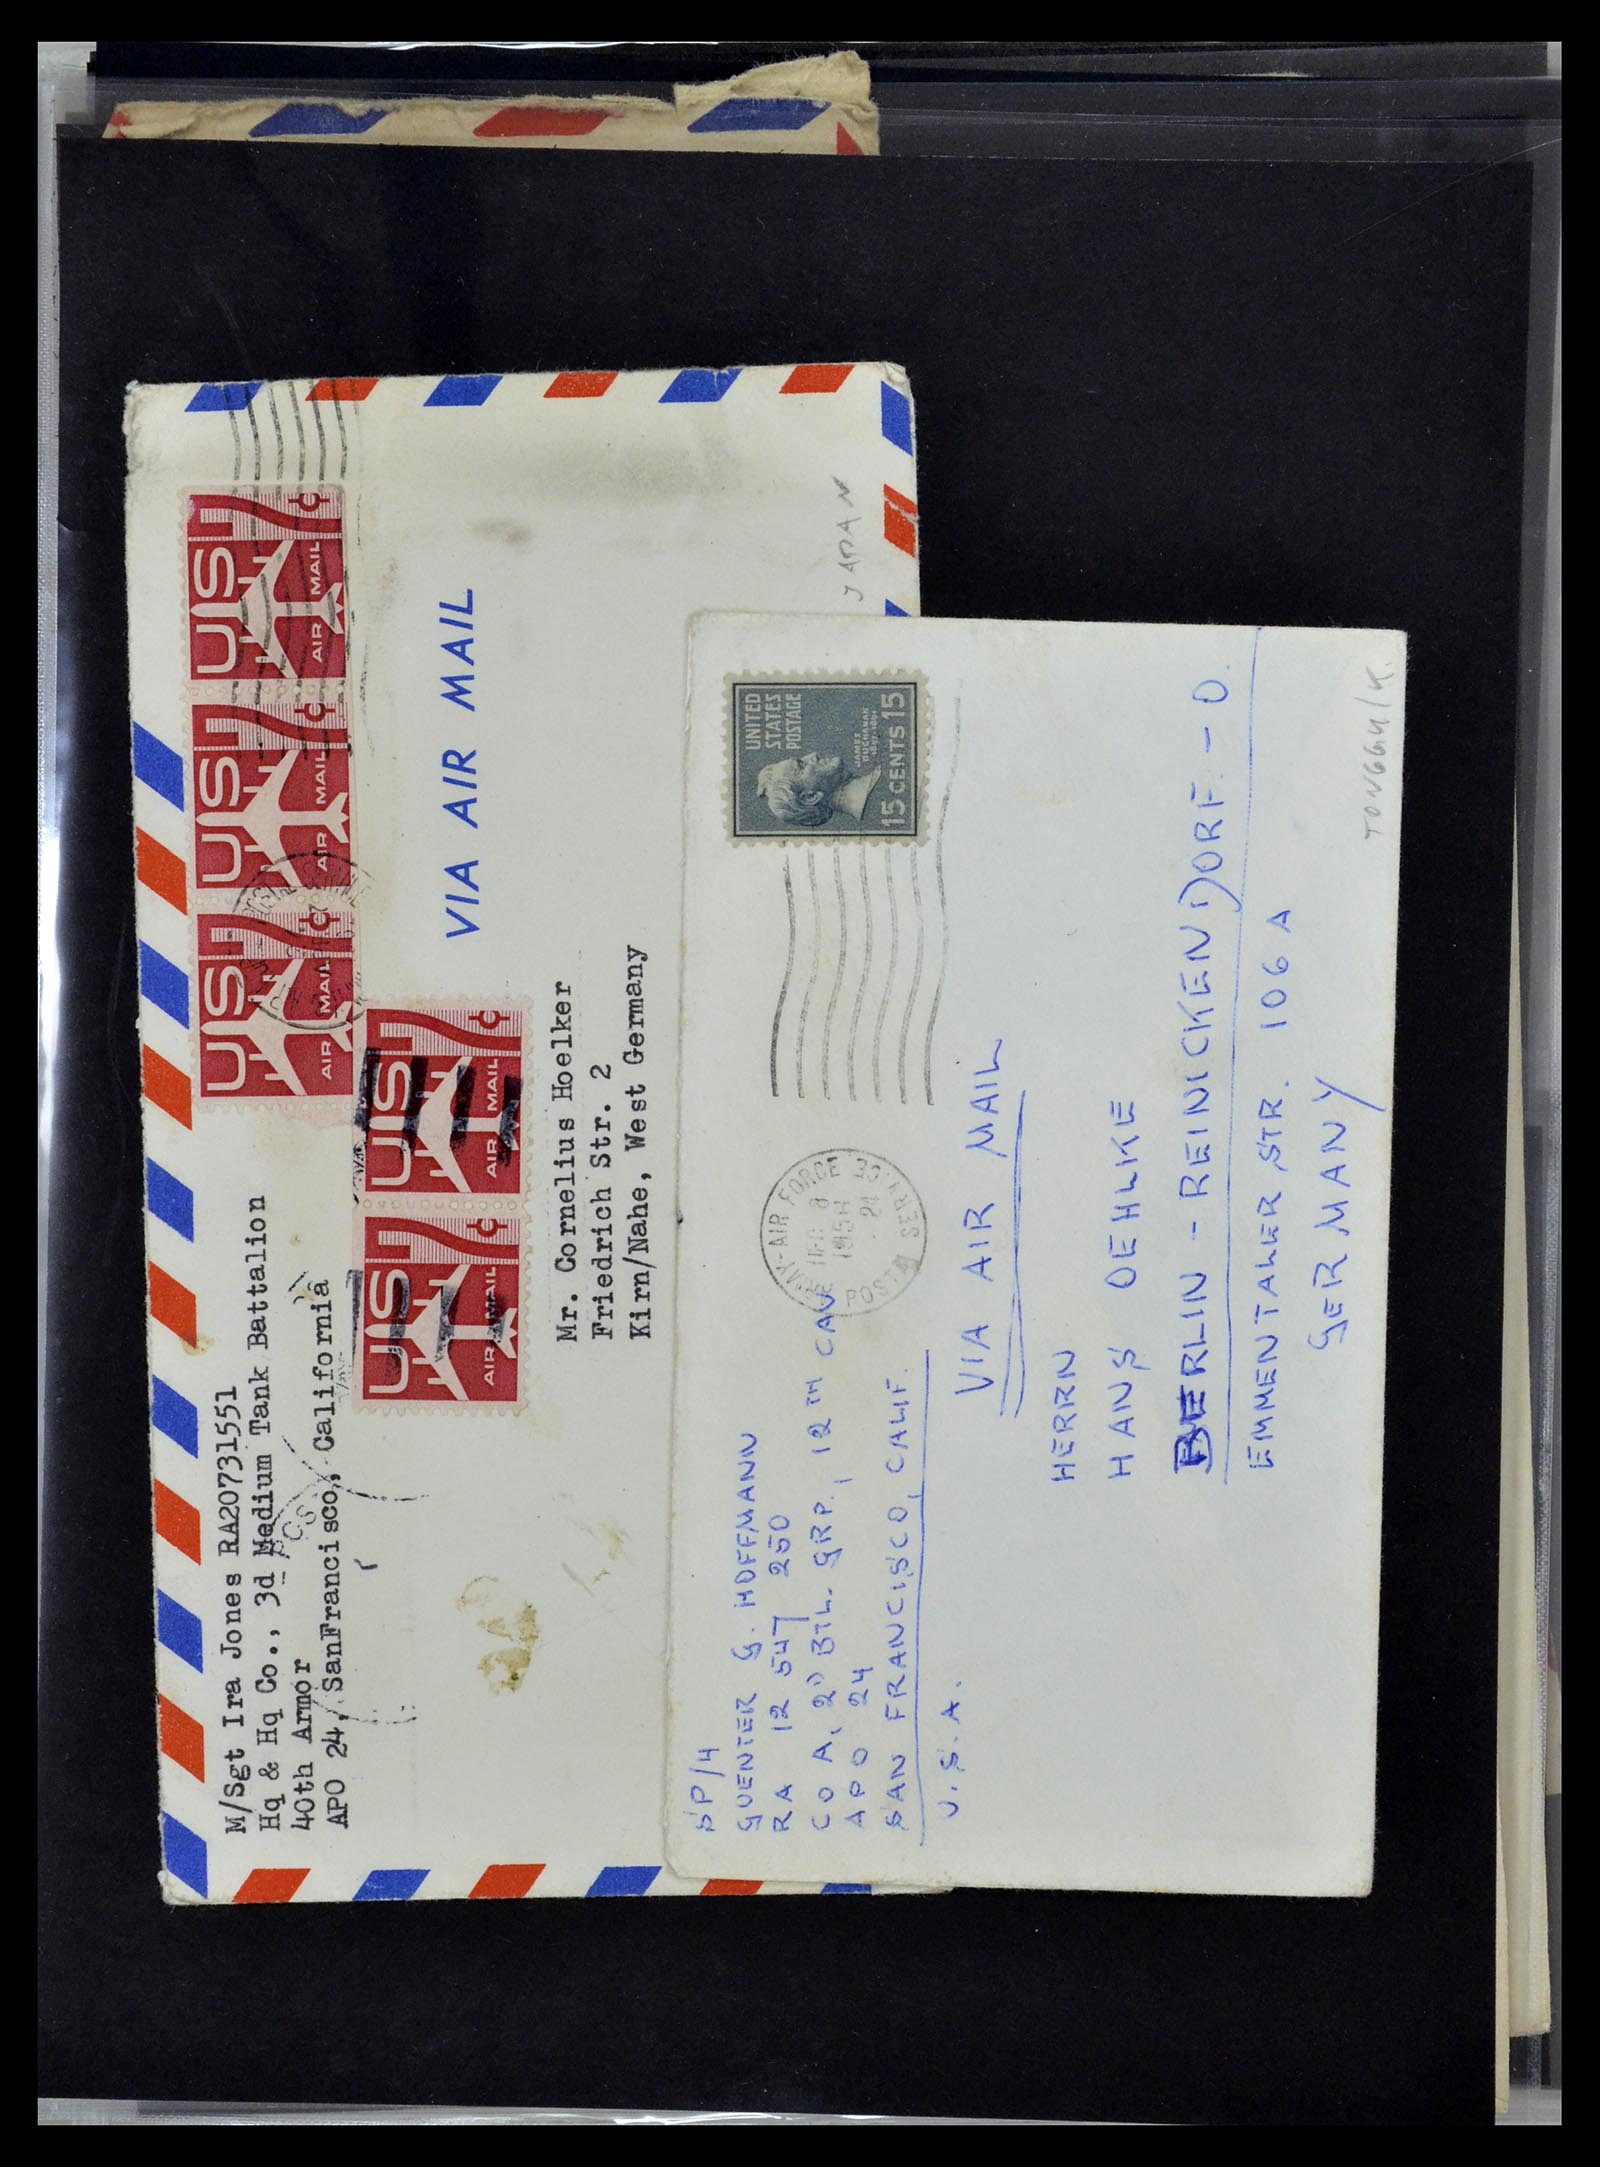 M/Sgt Ira Jones RA20731551
Hq & Hq Co., 3d Medium Tank Battalion
40th Armor
APO 24, SanFrancisco, California
US 7¢
AIR MAIL
US 7¢
AIR MAIL
US 7¢
AIR MAIL
US 7¢
AIR MAIL
US 7¢
AIR MAIL
VIA AIR MAIL
Mr. Cornelius Hoelker
Friedrich Str. 2
Kirn/Nahe, West Germany
JAPAN
SP/4
GUENTER G. HOFFMANN
RA 12 547 250
CO A, 2D BTL. GRP., 12TH CAV
APO 24
SAN FRANCISCO, CALIF.
U.S.A.
AIR FORCE POSTAL SERVICE
8
1958
UNITED
STATES
POSTAGE
JAMES
BUCHANAN
15 CENTS 15
VIA AIR MAIL
HERRN
HANS OEHLKE
BERLIN - REINICKENDORF. - O.
EMMENTALER STR. 106 A
GERMANY